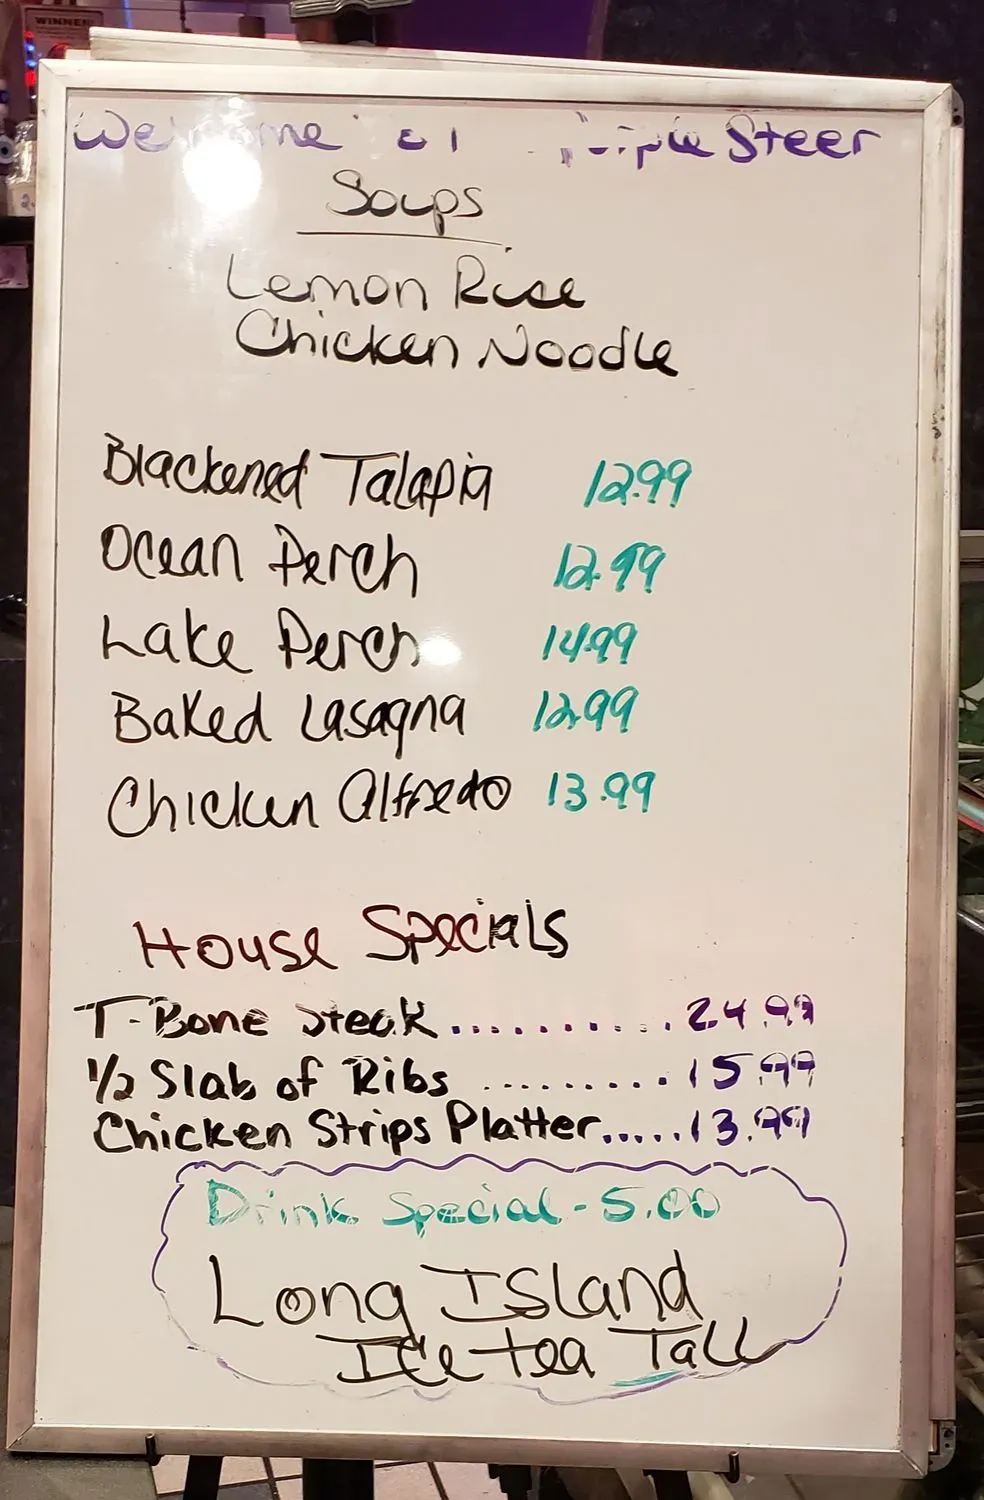 WINNER!
Welcome Triple Steer
Soups
Lemon Rice
Chicken Noodle
Blackened Talapia 12.99
Ocean Perch 12.99
Lake Perch 14.99
Baked Lasagna 12.99
Chicken Alfredo 13.99
House Specials
T-Bone Steak.......... 24.99
1/2 Slab of Ribs ......... 15.99
Chicken Strips Platter.....13.99
Drink Special - 5.00
Long Island
Ice tea Tall